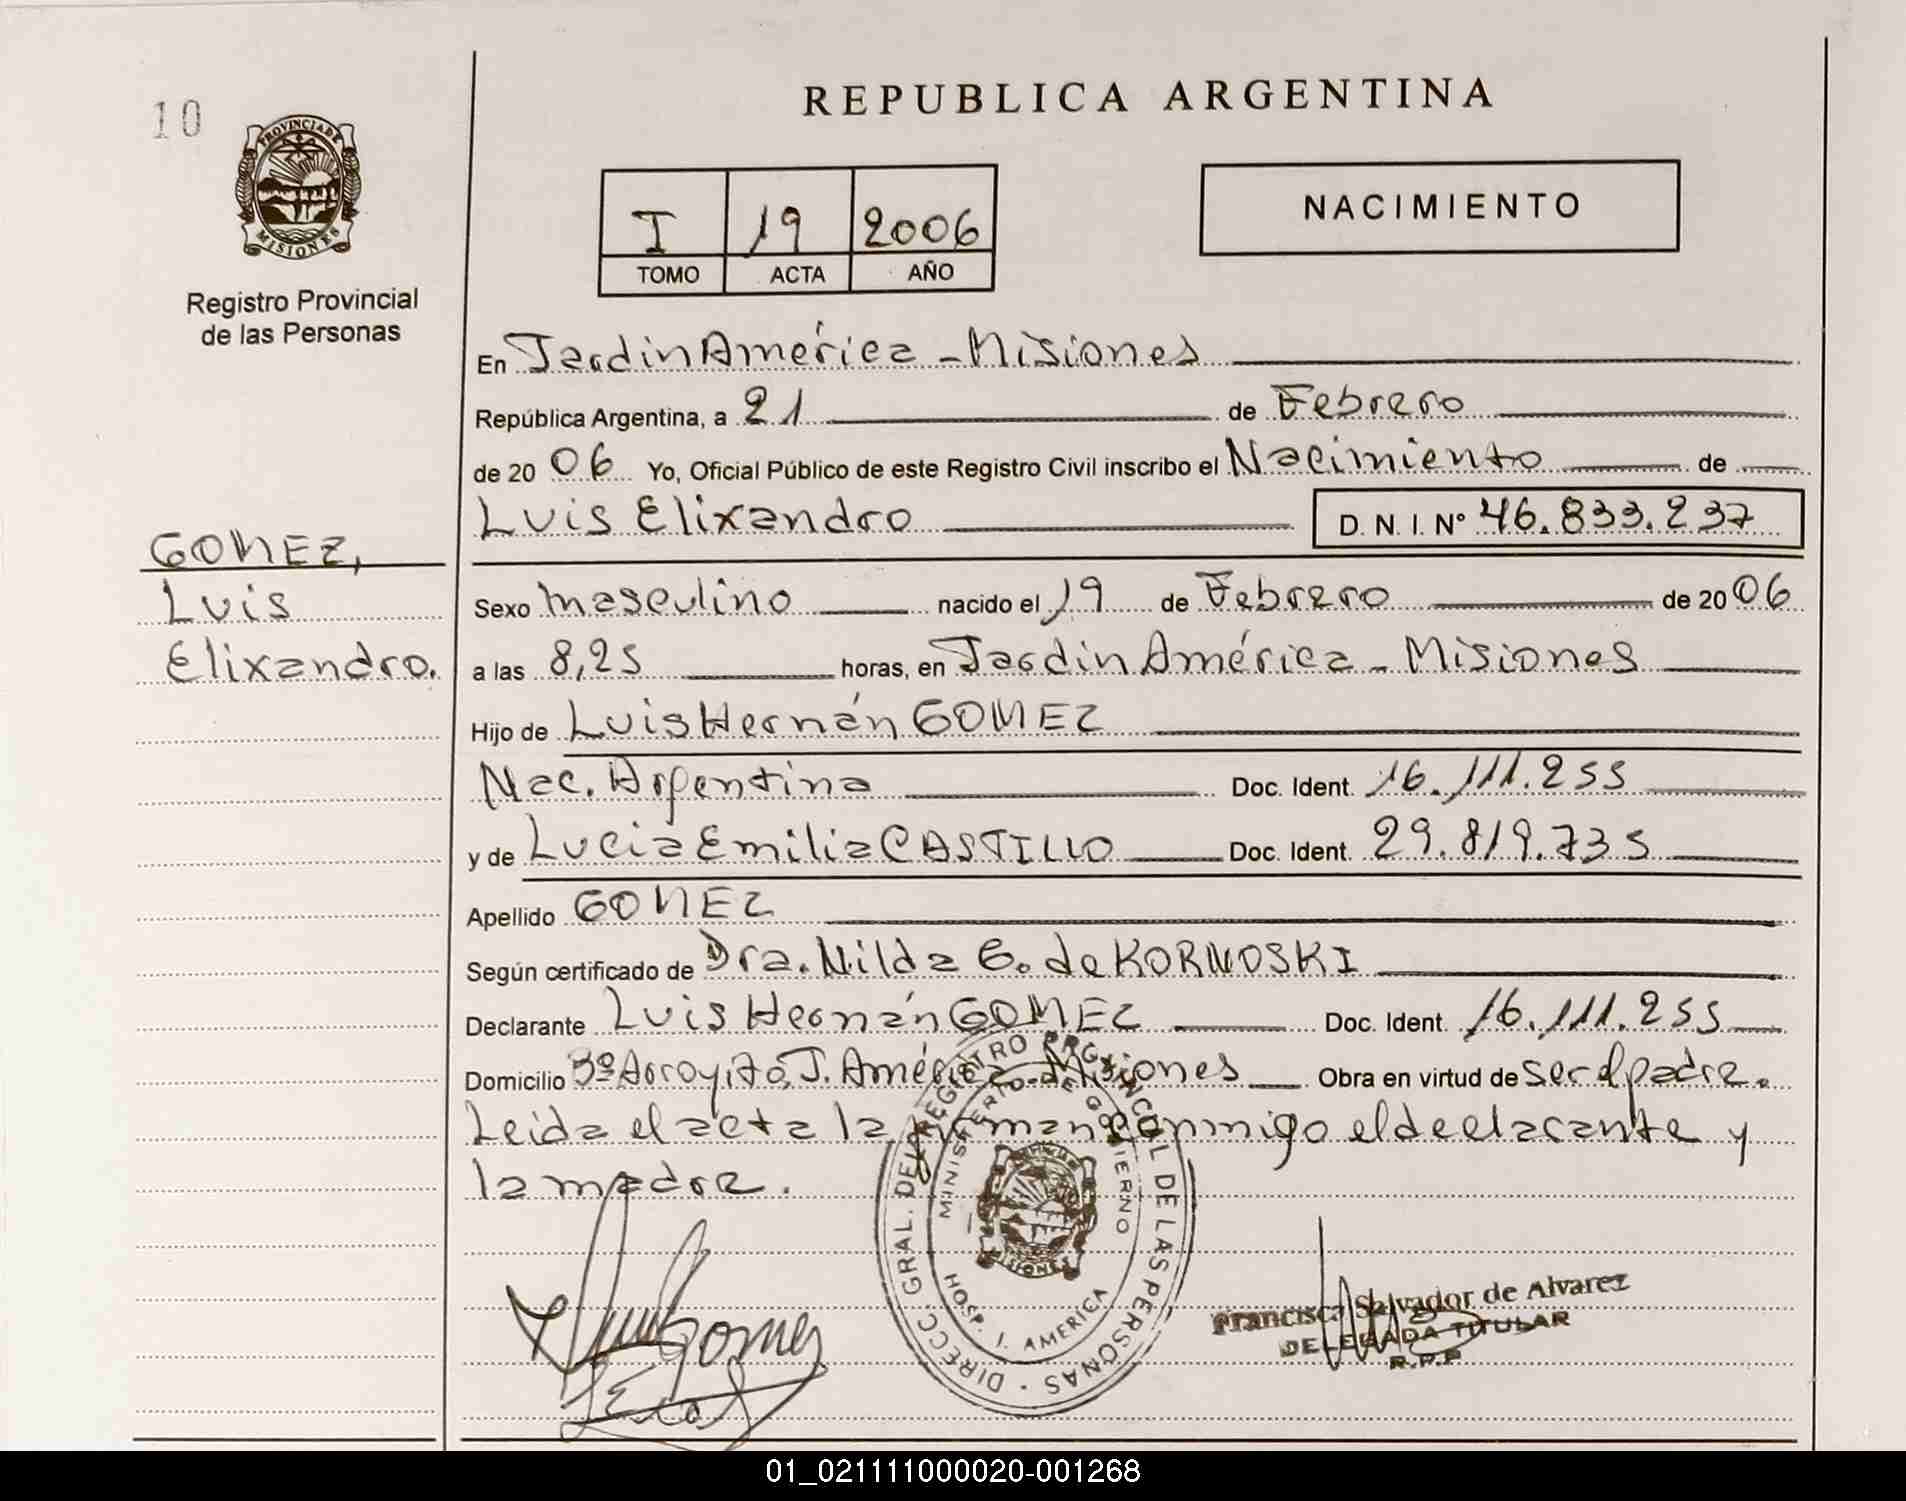 10
PROVINCIA DE
MISIONES
Registro Provincial
de las Personas
REPUBLICA ARGENTINA
I 19 2006
TOMO ACTA AÑO
NACIMIENTO
En Jardin América - Misiones
República Argentina, a 21 de Febrero
de 20 06 Yo, Oficial Público de este Registro Civil inscribo el Nacimiento de
Luis Elixandro D. N. I. Nº 46.833.237
GOMEZ,
Luis
Elixandro.
Sexo masculino nacido el 19 de Febrero de 20 06
a las 8,25 horas, en Jardin América - Misiones
Hijo de Luis Hernán GOMEZ
Nac. Argentina Doc. Ident. 16.111.255
y de Lucia Emilia CASTILLO Doc. Ident. 29.819.735
Apellido GOMEZ
Según certificado de Dra. Nilda G. de KORNOSKI
Declarante Luis Hernán GOMEZ Doc. Ident. 16.111.255
Domicilio Bº Arroyito, J. América - Misiones Obra en virtud de ser el padre.
Leída el acta la firman conmigo el declarante y
la madre.
DIRECC. GRAL. DEL REGISTRO PROVINCIAL DE LAS PERSONAS
MINISTERIO DE GOBIERNO
MISIONES
HOSP. J. AMERICA
Gomez
Francisca Salvador de Alvarez
DELEGADA TITULAR
R.P.P
01_021111000020-001268